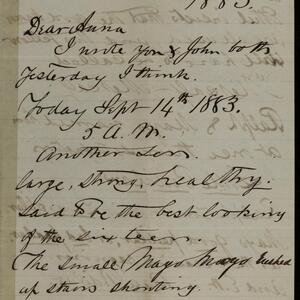 1883.
Dear Anna
I wrote you & John both
Yesterday I think.
Today Sept 14th 1883.
5 A.M.
Another Son.
large, strong, healthy.
Said to be the best looking
of the sixteen.
The small Mayo Mayo rushed
up stairs shouting.